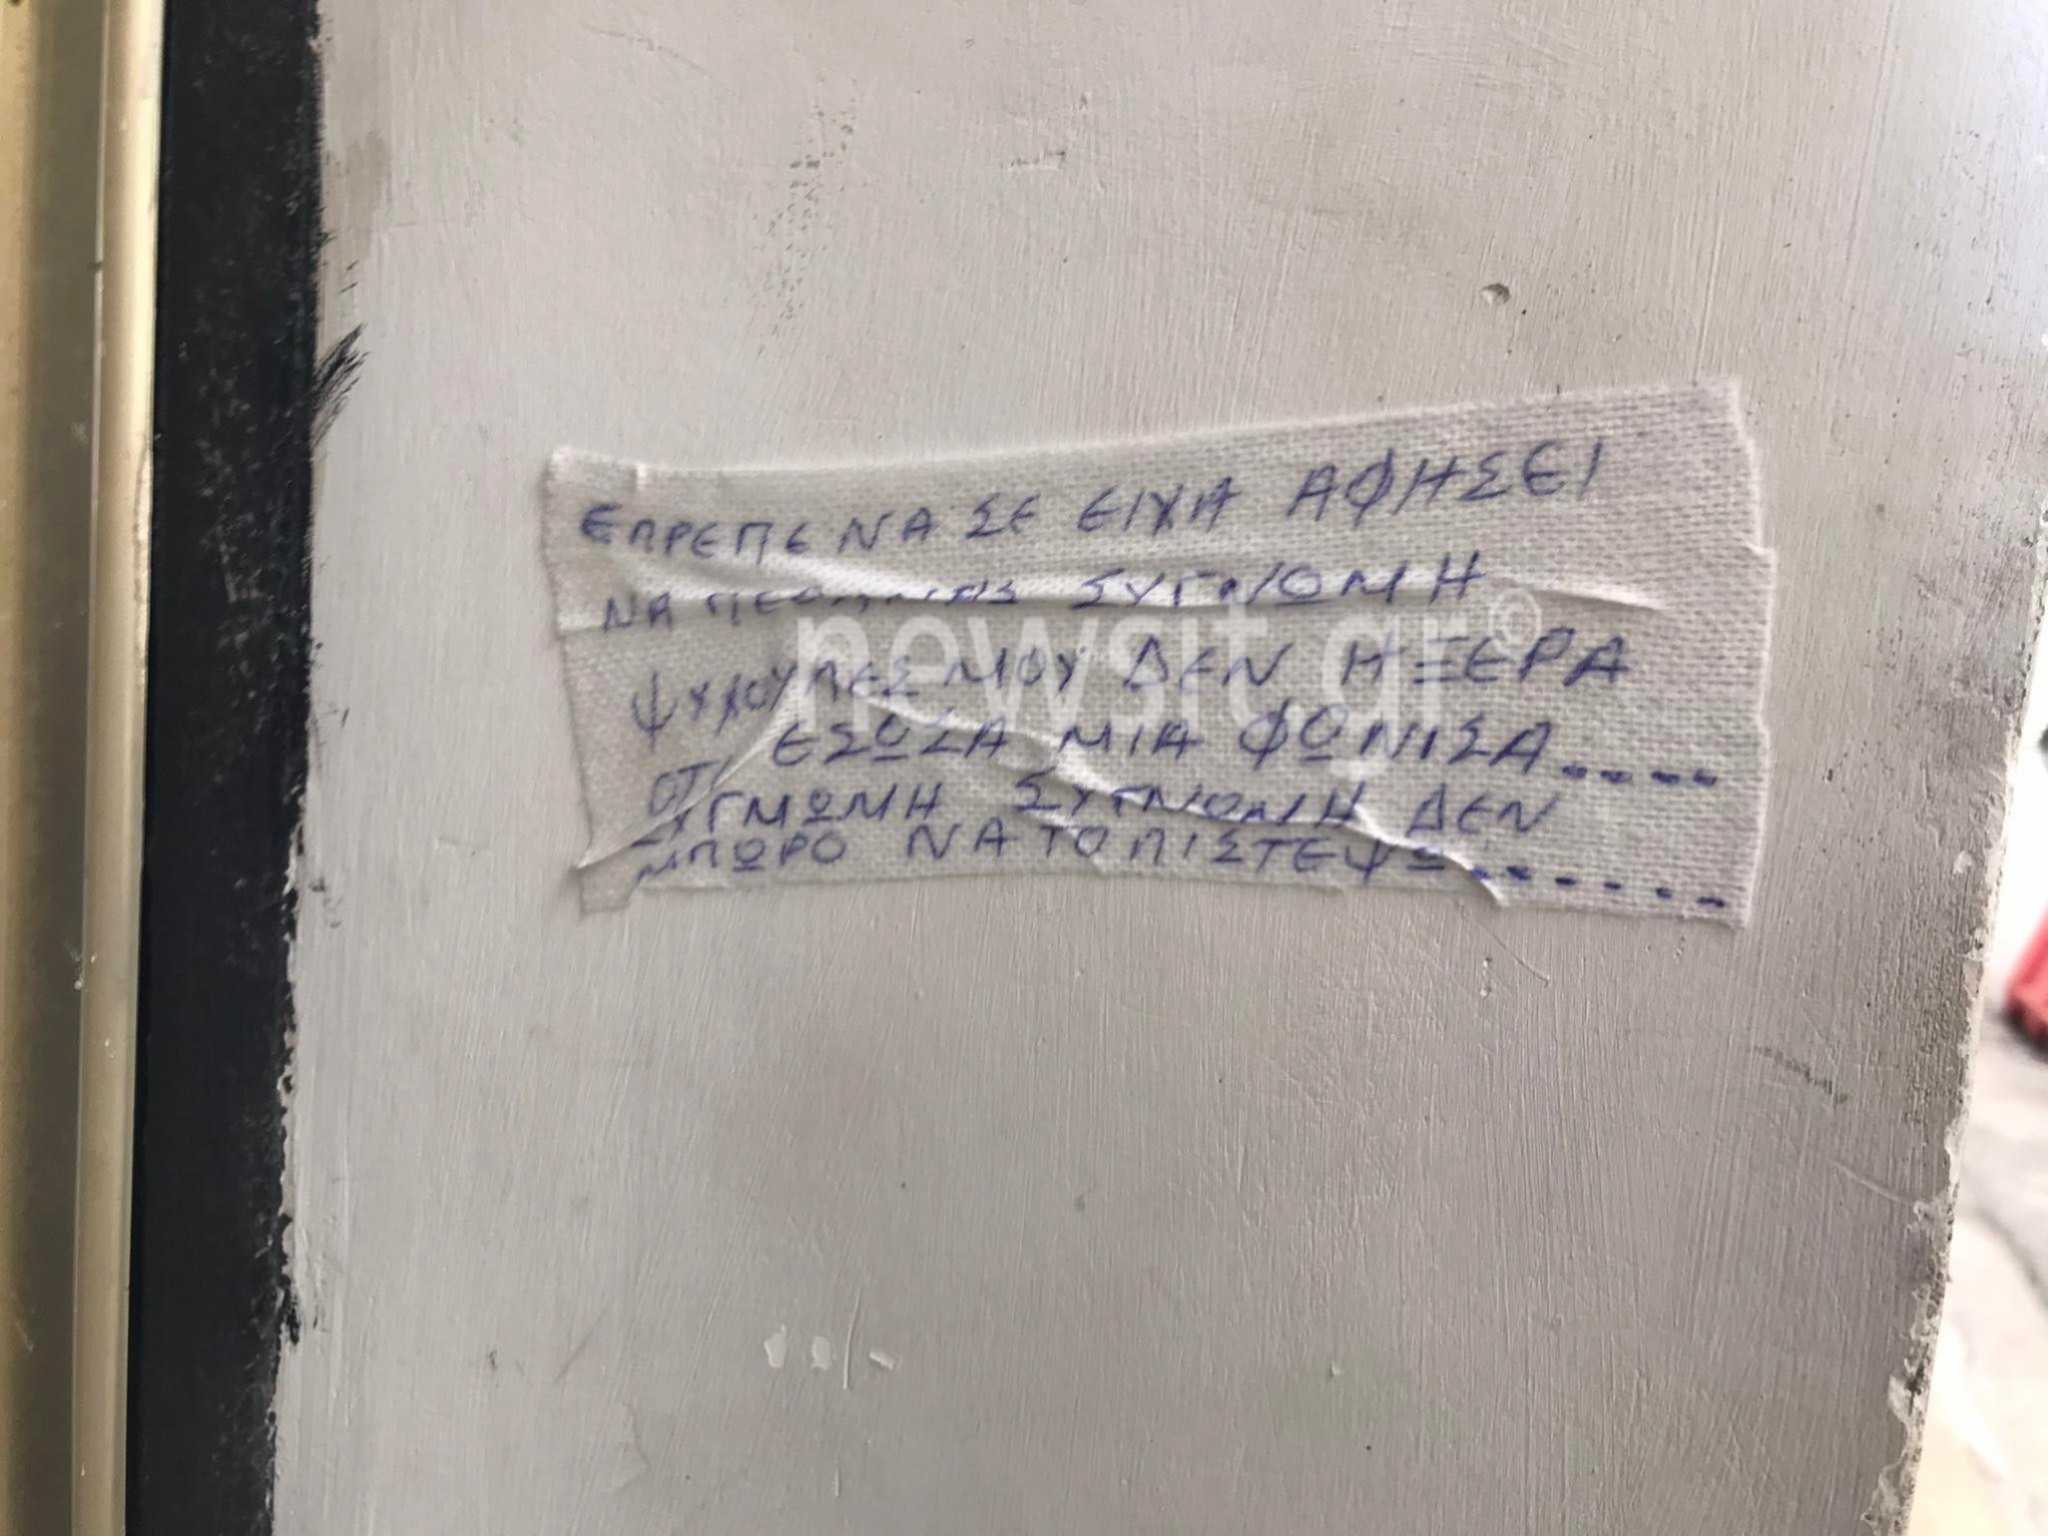 ΕΠΡΕΠΕ ΝΑ ΣΕ ΕΙΧΑ ΑΦΗΣΕΙ
ΝΑ ΣΥΓΝΩΜΗ
ΨΥΧΟΥΛΕΣ ΜΟΥ ΔΕΝ ΗΞΕΡΑ
ΟΤΙ ΕΣΩΣΑ ΜΙΑ ΦΩΝΙΣΑ....
ΣΥΓΜΩΜΗ ΣΥΓΝΩΜΗ ΔΕΝ
ΜΠΩΡΟ ΝΑ ΤΟ ΠΙΣΤΕΨΩ......
newsit.gr©